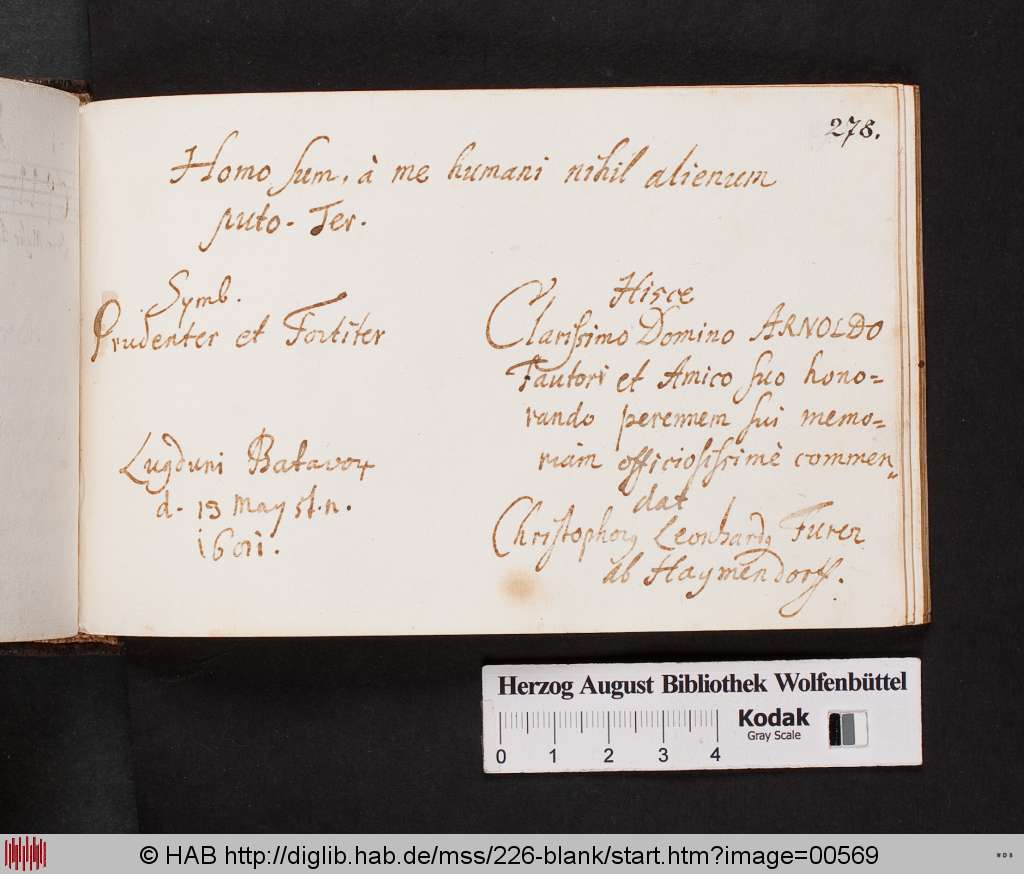 278.
Homo sum, à me humani nihil alienum
puto. Ter.
Symb.
Prudenter et Fortiter
Lugduni Batavoꝝ
d. 13 May st. n.
Hisce
Clarissimo Domino ARNOLDO
Fautori et Amico suo hono=
rando perennem sui memo=
riam officiosissimè commen=
dat
Christophorꝰ Leonhardꝰ Furer
ab Haymendorff.
Herzog August Bibliothek Wolfenbüttel
Kodak
Gray Scale
0 1 2 3 4
© HAB http://diglib.hab.de/mss/226-blank/start.htm?image=00569